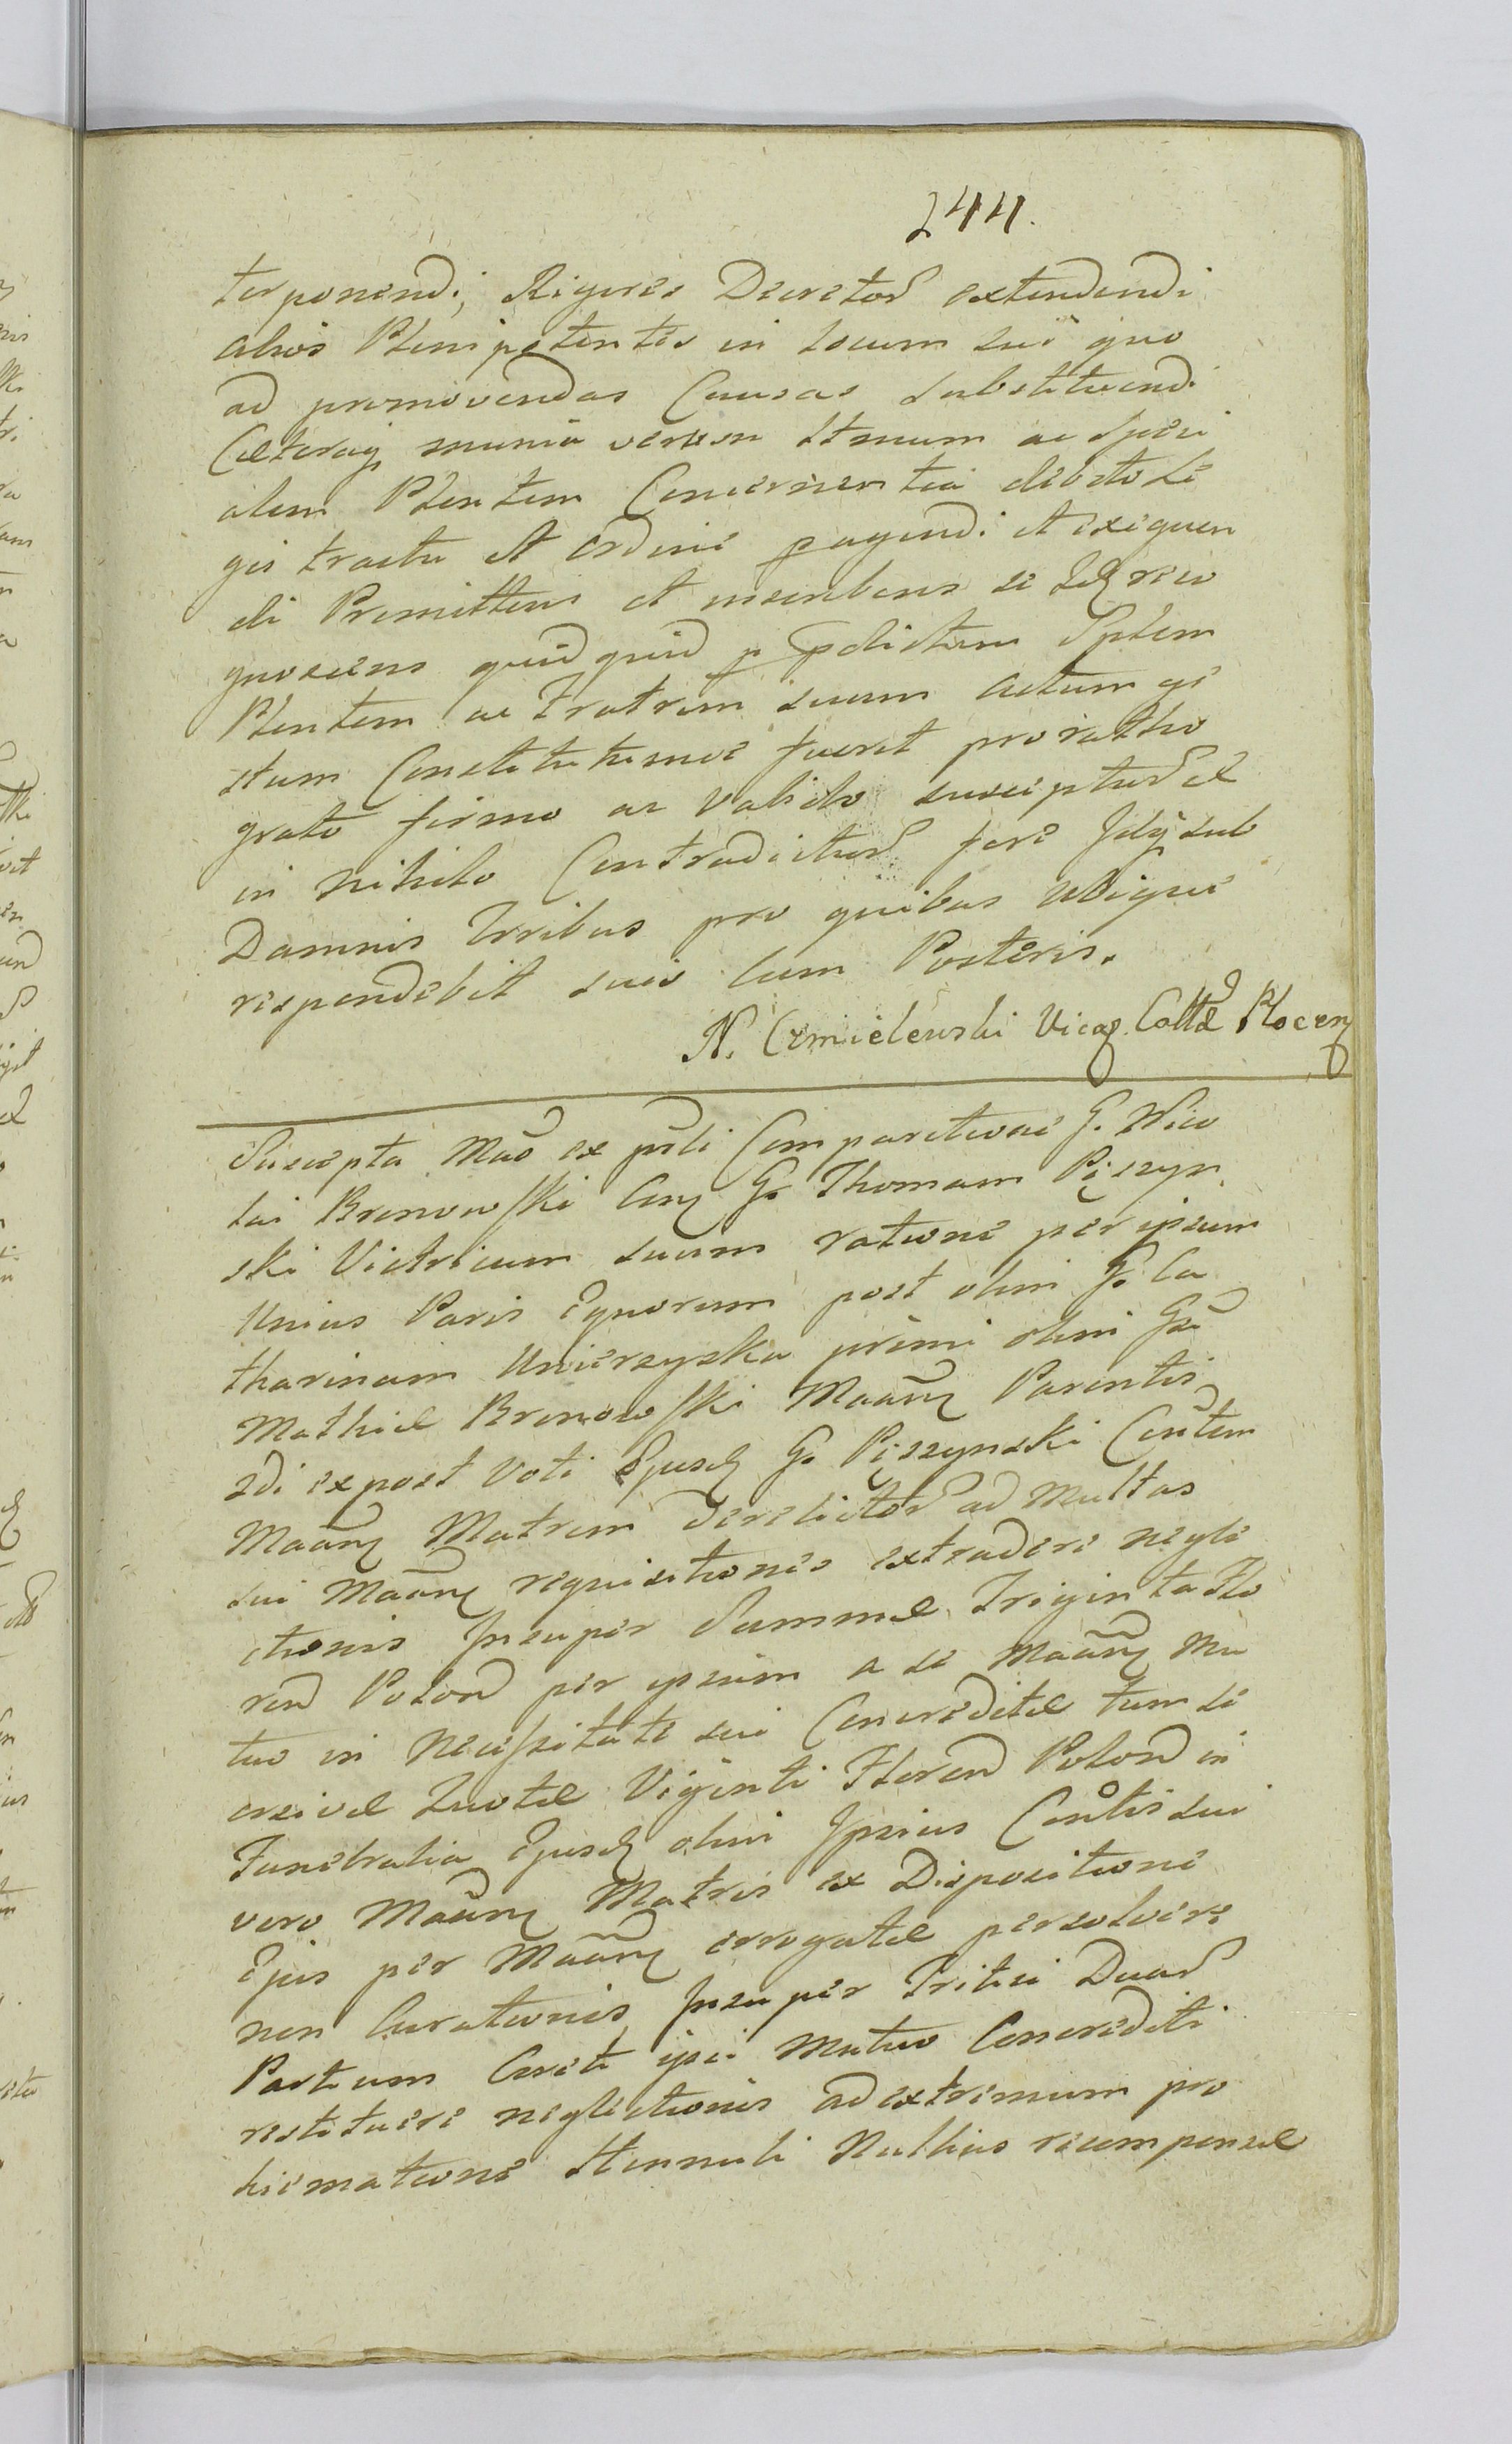 244.
terponendi, Rigores Decretor extendendi
alios Plenipotentes in locum sui quo
ad promovendas Causas substituendi
Cæteraq munia verum Itmum ac Speci
alem Plentem Concernentia debito Le
gis tractu et ordine pagendi et exequen
di Promittens et inscribens se
quidquid p pdictum Sptem
Plentem ac Fratrem suum actum ge
stum Constitutumve fuerit pro ratho
grato firmo ac valido suscipturd el
in nihilo Contradicturd fore sub
Damnis Trribus pro quibus ubique
respondebit suis cum Posteris.
N. Czmielewski Vicag Collæ Plocen
Suscepta Mao ex psli Comparitione G. Nico
lai Bronowski Conq G. Thomam Pęszyn
ski Victricum suum ratione per ipsum
Unius Paris Equorum post olim G. Ca
tharinam Unierzyska primi olim Gsi
Mathiæ Bronowski Maanq Parentis
2di expost Voti Ejusd G. Pęszynski Contem
Maanq Matrem derelictor ad Multas
sui Maanq requisitiones extradere negle
ctionis Insuper Summæ Triginta Flo
rend Polond per ipsum a se Maanq Mu
tuo in Necessitate sui Concreditæ tum Si
Viginti Florend Polond in
Funebralia Ejusd olim Ipsius Contis sui
vero Maanq Matris ex Dispositione
Ejus per Maanq erogatæ persolvere
non Curationis, Insuper Tritici Duar
Partium Coreti ipsi Mutuo Concrediti
restituere neglectionis ad extremum pro
hiematione Hennuli Nullius recompensæ